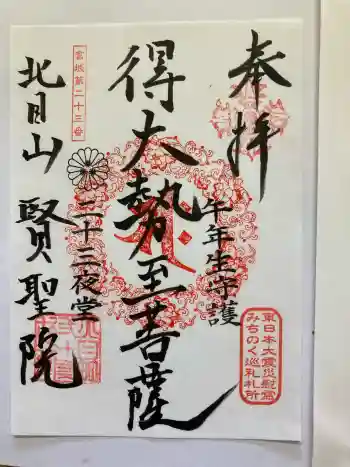 奉拝
午年生守護
東日本大震災慰霊
みちのく巡礼札所
得大勢至菩薩
二十三夜堂
宮城第二十三番
北目山 賢聖院